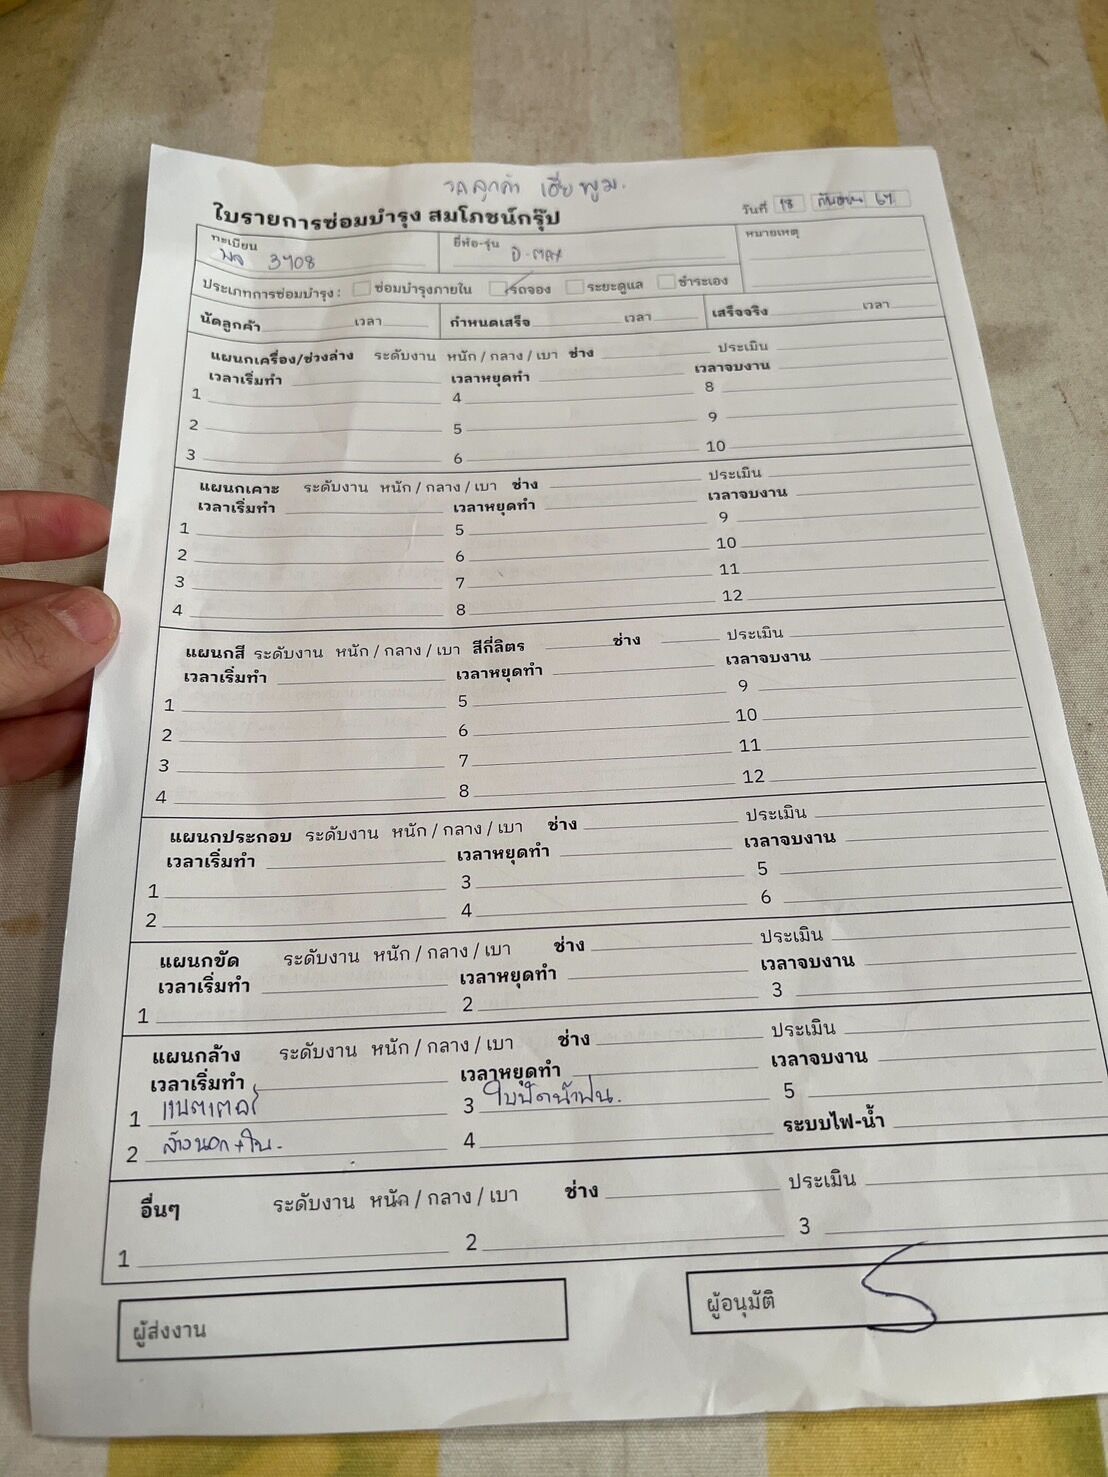 รถลูกค้า เฮียพูม.
ใบรายการซ่อมบำรุง สมโภชน์กรุ๊ป วันที่ 13 กันยายน 67
ทะเบียน ยี่ห้อ-รุ่น หมายเหตุ
3708 D-MAX
ประเภทการซ่อมบำรุง : ซ่อมบำรุงภายใน รถจอง ระยะดูแล ชำระเอง
นัดลูกค้า เวลา กำหนดเสร็จ เวลา เสร็จจริง เวลา
แผนกเครื่อง/ช่วงล่าง ระดับงาน หนัก / กลาง / เบา ช่าง ประเมิน
เวลาเริ่มทำ เวลาหยุดทำ เวลาจบงาน
1 4 8
2 5 9
3 6 10
แผนกเคาะ ระดับงาน หนัก / กลาง / เบา ช่าง ประเมิน
เวลาเริ่มทำ เวลาหยุดทำ เวลาจบงาน
1 5 9
2 6 10
3 7 11
4 8 12
แผนกสี ระดับงาน หนัก / กลาง / เบา สีกี่ลิตร ช่าง ประเมิน
เวลาเริ่มทำ เวลาหยุดทำ เวลาจบงาน
1 5 9
2 6 10
3 7 11
4 8 12
แผนกประกอบ ระดับงาน หนัก / กลาง / เบา ช่าง ประเมิน
เวลาเริ่มทำ เวลาหยุดทำ เวลาจบงาน
1 3 5
2 4 6
แผนกขัด ระดับงาน หนัก / กลาง / เบา ช่าง ประเมิน
เวลาเริ่มทำ เวลาหยุดทำ เวลาจบงาน
1 2 3
แผนกล้าง ระดับงาน หนัก / กลาง / เบา ช่าง ประเมิน
เวลาเริ่มทำ เวลาหยุดทำ เวลาจบงาน
1 แบตเตอรี่ 3 ใบปัดน้ำฝน. 5
2 ล้างนอก+ใน. 4 ระบบไฟ-น้ำ
อื่นๆ ระดับงาน หนัก / กลาง / เบา ช่าง ประเมิน
1 2 3
ผู้ส่งงาน ผู้อนุมัติ